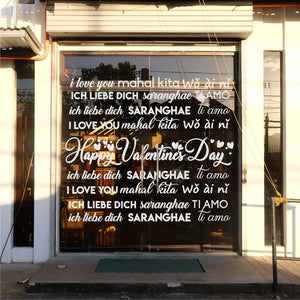 i love you mahal kita wǒ ài nǐ
ICH LIEBE DICH saranghae TI AMO
ich liebe dich SARANGHAE ti amo
I LOVE YOU mahal kita wǒ ài nǐ
Happy Valentine's Day
ich liebe dich SARANGHAE ti amo
I LOVE YOU mahal kita wǒ ài nǐ
ICH LIEBE DICH saranghae TI AMO
ich liebe dich SARANGHAE ti amo